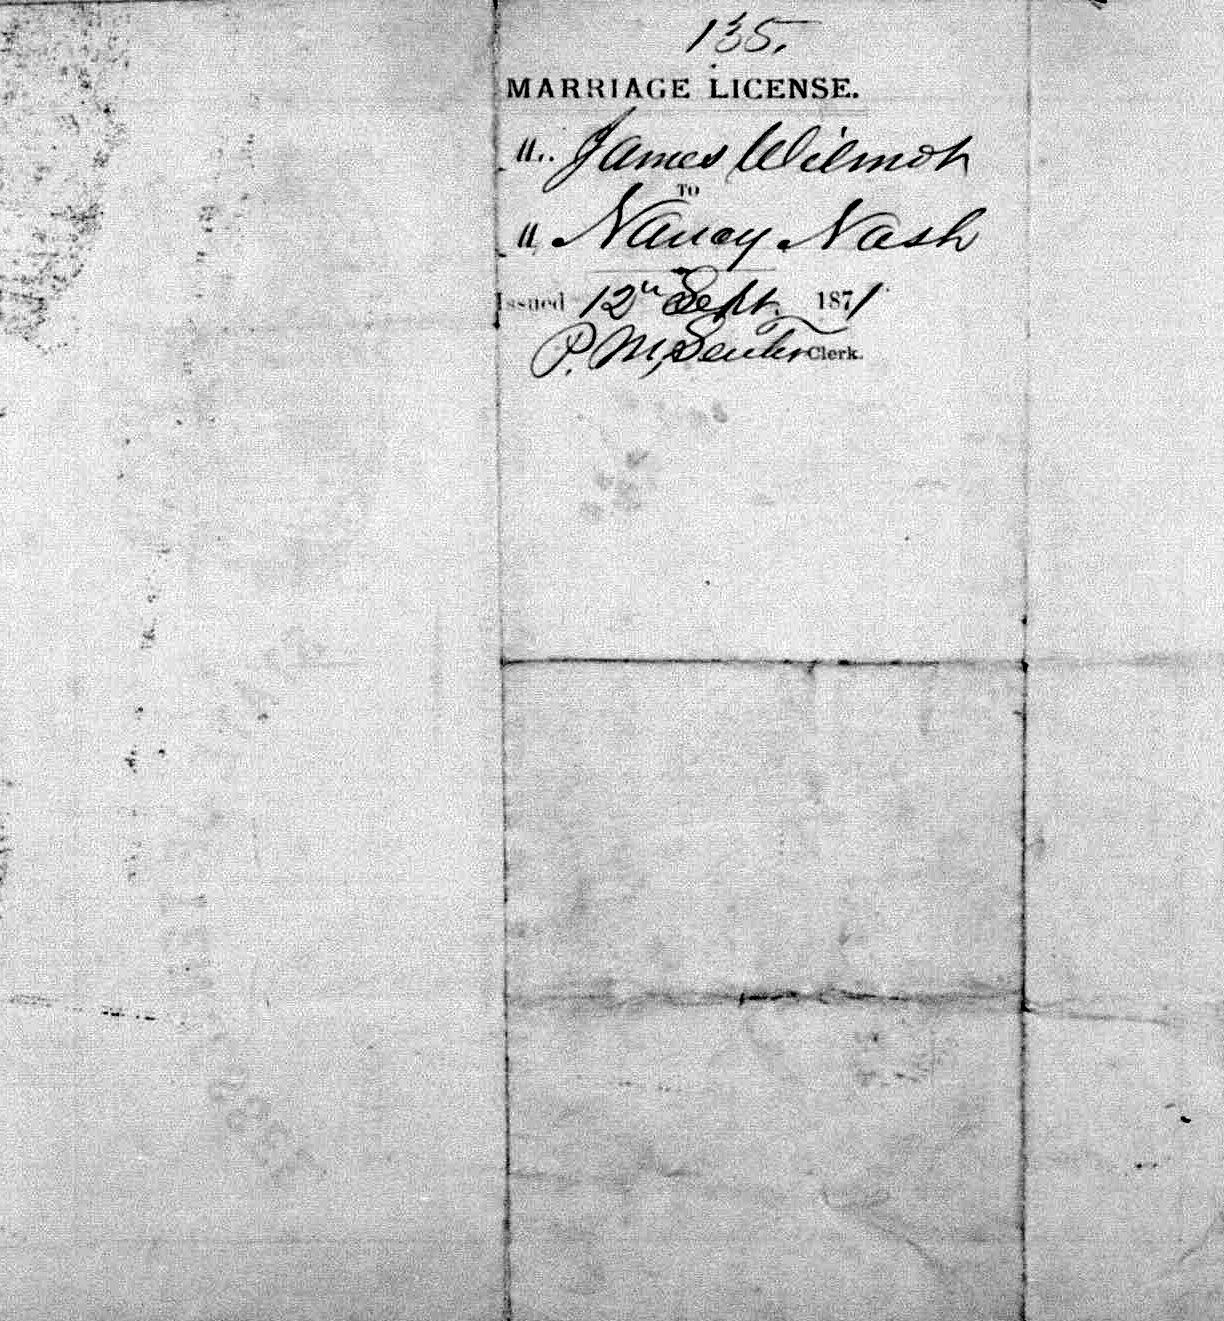 135.
MARRIAGE LICENSE.
M.. James Wilmoth
TO
M. Nancy Nash
Issued 12th Sept. 1871
P. M. Senter Clerk.